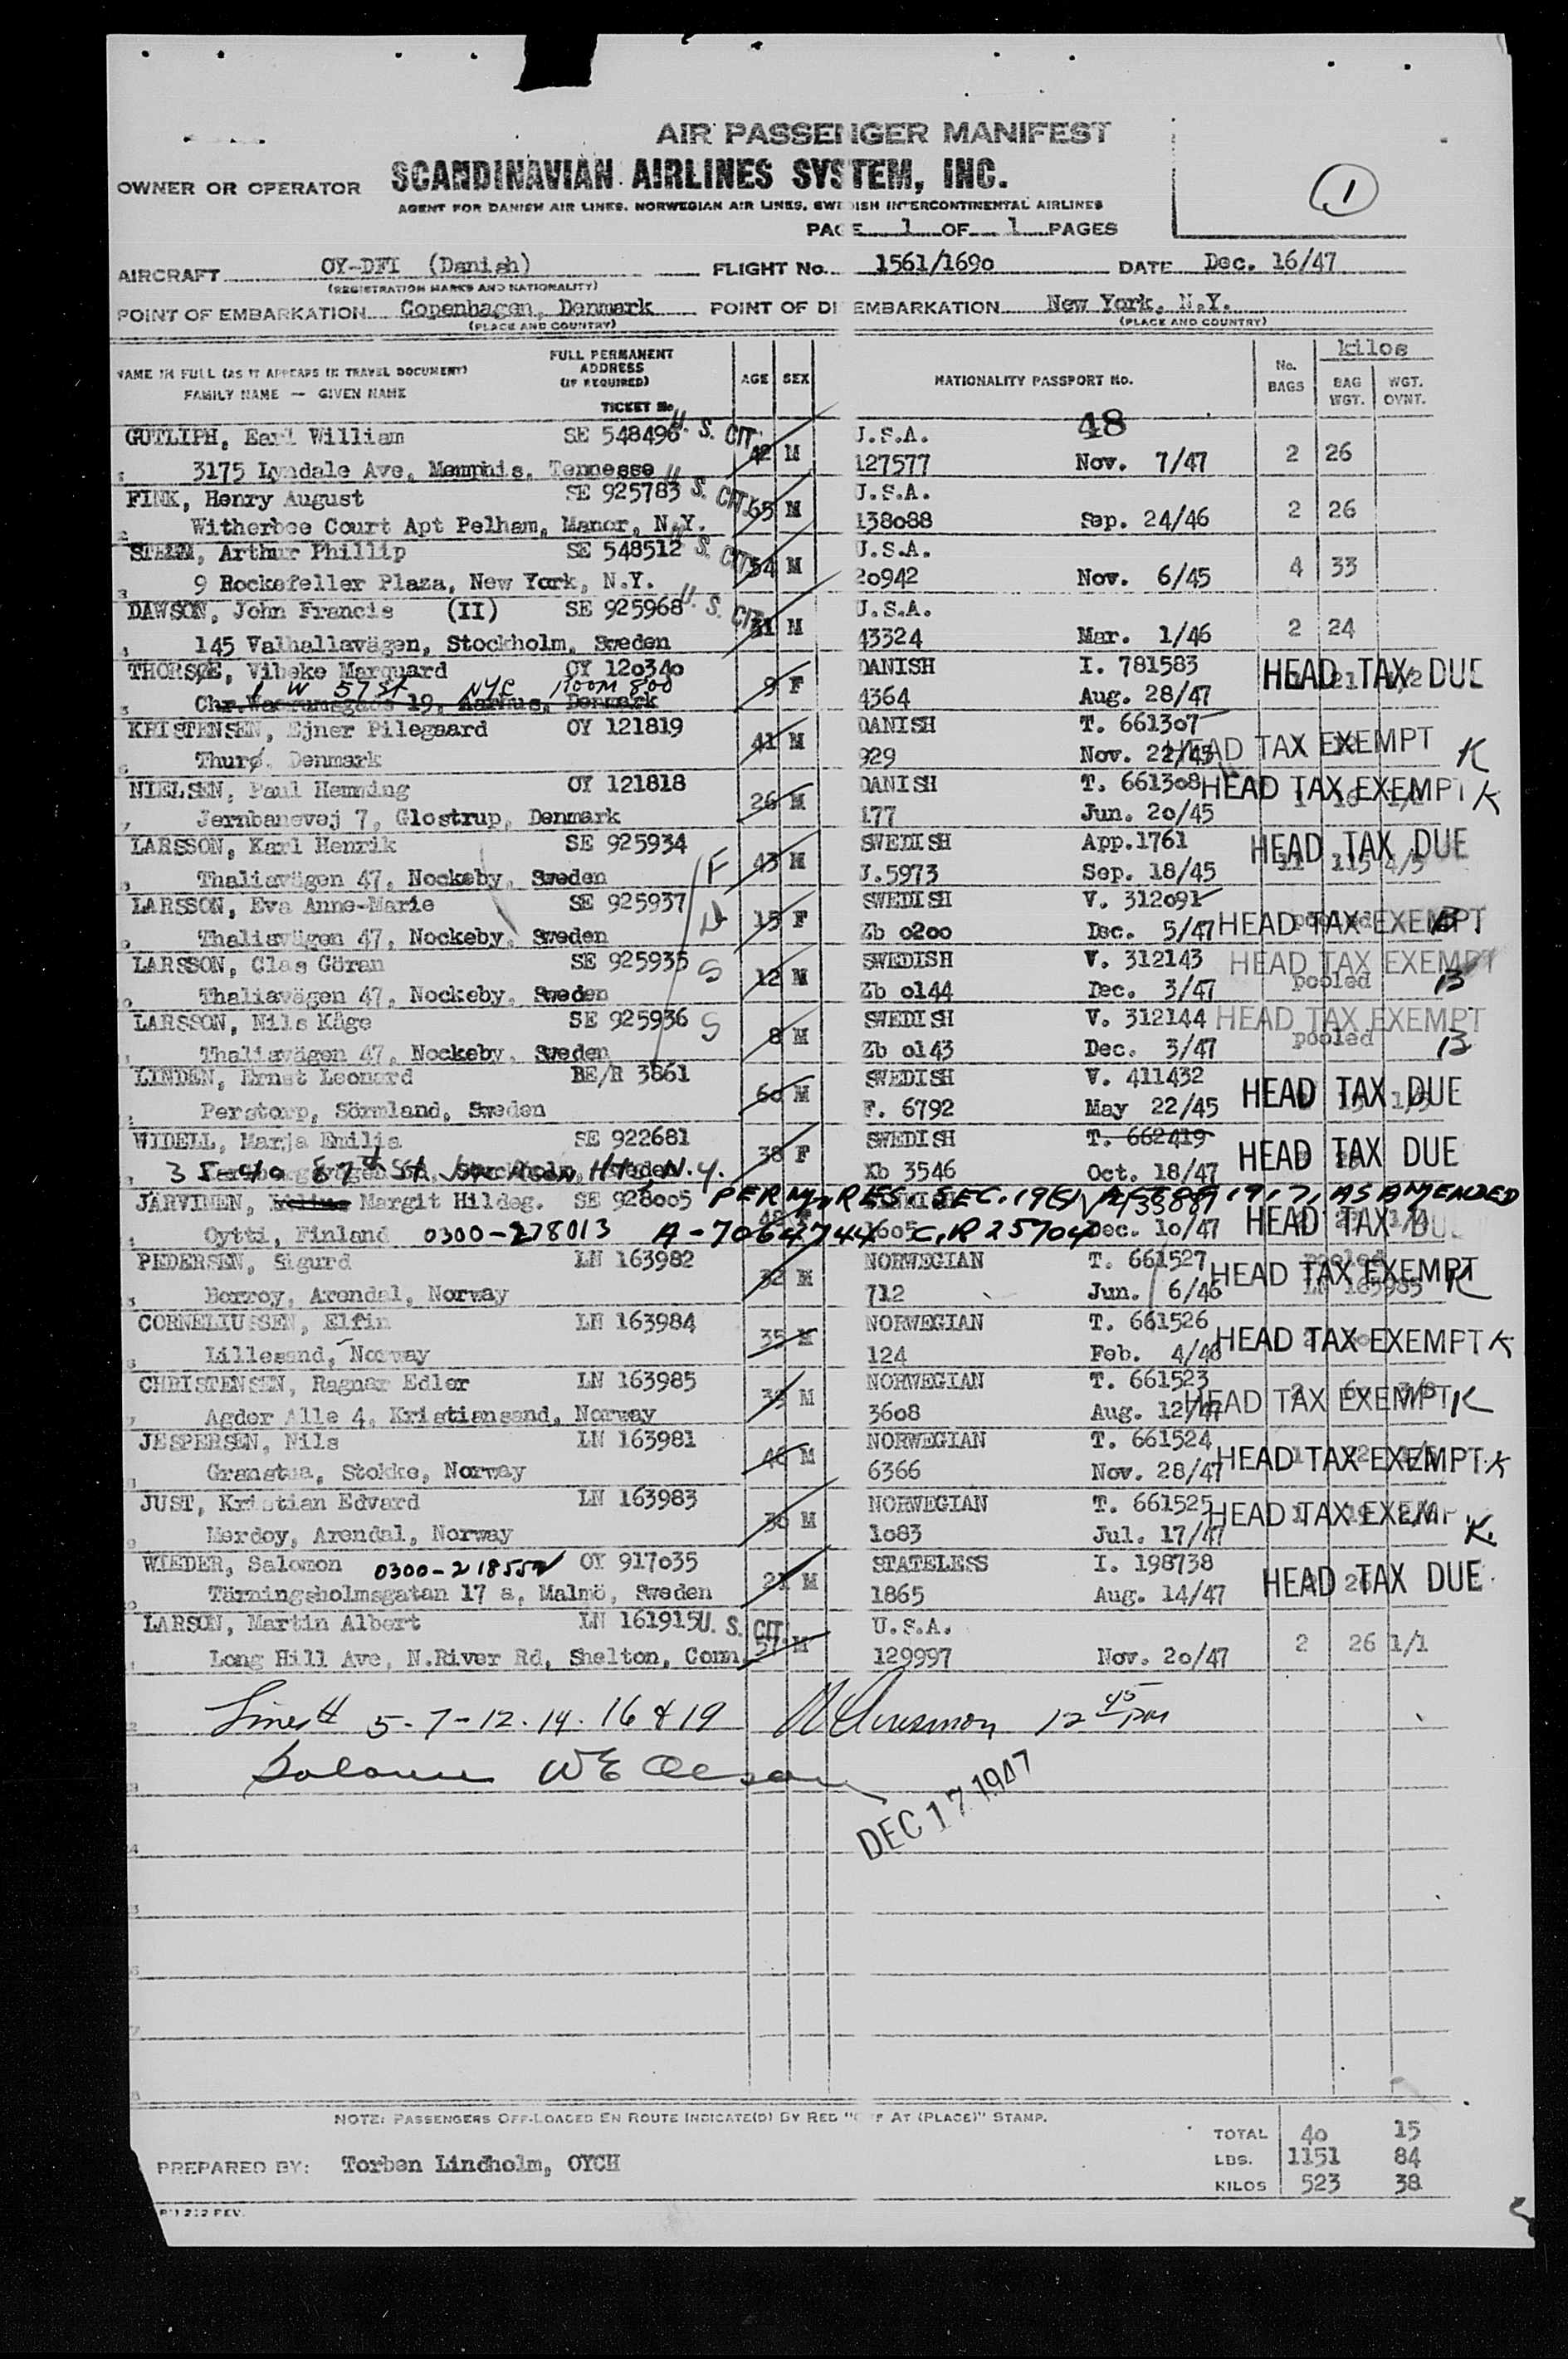 AIR PASSENGER MANIFEST
OWNER OR OPERATOR SCANDINAVIAN AIRLINES SYSTEM, INC.
AGENT FOR DANISH AIR LINES, NORWEGIAN AIR LINES, SWEDISH INTERCONTINENTAL AIRLINES
1
PAGE 1 OF 1 PAGES
AIRCRAFT OY-DFI (Danish) FLIGHT No. 1561/1690 DATE Dec. 16/47
(REGISTRATION MARKS AND NATIONALITY)
POINT OF EMBARKATION Copenhagen, Denmark POINT OF DI EMBARKATION New York, N.Y.
(PLACE AND COUNTRY) (PLACE AND COUNTRY)
NAME IN FULL (AS IT APPEARS IN TRAVEL DOCUMENT) FAMILY NAME — GIVEN NAME
FULL PERMANENT ADDRESS (IF REQUIRED) TICKET No.
AGE SEX NATIONALITY PASSPORT No. No. BAGS kilos BAG WGT. WGT. OVNT.
48
GUTLIPH, Earl William SE 548496 U. S. CIT. 42 M U.S.A.
3175 Lyndale Ave, Memphis, Tennesse 127577 Nov. 7/47 2 26
FINK, Henry August SE 925783 U. S. CIT. 65 M U.S.A.
Witherbee Court Apt Pelham, Manor, N.Y. 138088 Sep. 24/46 2 26
Arthur Phillip SE 548512 U. S. CIT. 54 M U.S.A.
9 Rockefeller Plaza, New York, N.Y. 20942 Nov. 6/45 4 33
DAWSON, John Francis (II) SE 925968 U. S. CIT. 31 M U.S.A.
145 Valhallavägen, Stockholm, Sweden 43324 Mar. 1/46 2 24
THORSØE, Vibeke Marquard OY 120340 9 F DANISH I. 781583 HEAD TAX DUE
1 W 57 St NYC Room 800
19, Aarhus, Denmark 4364 Aug. 28/47
KRISTENSEN, Ejner Pilegaard OY 121819 41 M DANISH T. 661307
Thurø, Denmark 929 Nov. 22/45 HEAD TAX EXEMPT K
NIELSEN, Paul Henning OY 121818 26 M DANISH T. 661308 HEAD TAX EXEMPT K
Jernbanevej 7, Glostrup, Denmark 177 Jun. 20/45
LARSSON, Karl Henrik SE 925934 F 43 M SWEDISH App.1761 HEAD TAX DUE
Thaliavägen 47, Nockeby, Sweden J.5973 Sep. 18/45 11 115 4/5
LARSSON, Eva Anne-Marie SE 925937 D 15 F SWEDISH V. 312091
Thaliavägen 47, Nockeby, Sweden Zb 0200 Dec. 5/47 HEAD TAX EXEMPT pooled B
LARSSON, Clas Göran SE 925935 S 12 M SWEDISH V. 312143 HEAD TAX EXEMPT
Thaliavägen 47, Nockeby, Sweden Zb 0144 Dec. 3/47 pooled B
LARSSON, Nils Kåge SE 925936 S 8 M SWEDISH V. 312144 HEAD TAX EXEMPT
Thaliavägen 47, Nockeby, Sweden Zb 0143 Dec. 3/47 pooled B
LINDEN, Ernst Leonard BE/R 3861 60 M SWEDISH V. 411432
Perstorp, Sörmland, Sweden F. 6792 May 22/45 HEAD TAX DUE
WIDELL, Marja Emilia SE 922681 38 F SWEDISH T. 662419
35-40 87th St Jackson Hts, N.Y. Xb 3546 Oct. 18/47 HEAD TAX DUE
JARVINEN, Margit Hildeg. SE 928005 PERM. RES. SEC. 1917, AS AMENDED
Oytti, Finland 0300-278013 A-7064744 C.R 25704 Dec. 10/47 HEAD TAX DUE
PEDERSEN, Sigurd LN 163982 32 M NORWEGIAN T. 661527 pooled
Borroy, Arendal, Norway 712 Jun. 6/46 HEAD TAX EXEMPT LN 163985 K
CORNELIUSSEN, Elfin LN 163984 35 M NORWEGIAN T. 661526
Lillesand, Norway 124 Feb. 4/46 HEAD TAX EXEMPT K
CHRISTENSEN, Ragnar Edler LN 163985 M NORWEGIAN T. 661523
Agder Alle 4, Kristiansand, Norway 3608 Aug. 12/47 HEAD TAX EXEMPT K
JESPERSEN, Nils LN 163981 46 M NORWEGIAN T. 661524
Granstua, Stokke, Norway 6366 Nov. 28/47 HEAD TAX EXEMPT K
JUST, Kristian Edvard LN 163983 36 M NORWEGIAN T. 661525 HEAD TAX EXEMP
Merdoy, Arendal, Norway 1083 Jul. 17/47 K.
WIEDER, Salomon 0300-218552 OY 917035 21 M STATELESS I. 198738
Tärningsholmsgatan 17 a, Malmö, Sweden 1865 Aug. 14/47 HEAD TAX DUE
LARSON, Martin Albert LN 161915 U. S. CIT. 57 M U.S.A.
Long Hill Ave, N.River Rd, Shelton, Conn. 129997 Nov. 20/47 2 26 1/1
Lines 5-7-12-14-16 & 19 12 45 PM
DEC 17 1947
NOTE: PASSENGERS OFF-LOADED EN ROUTE INDICATE(D) BY RED "OFF AT (PLACE)" STAMP.
TOTAL 40 15
PREPARED BY: Torben Lindholm, OYCH LBS. 1151 84
KILOS 523 38